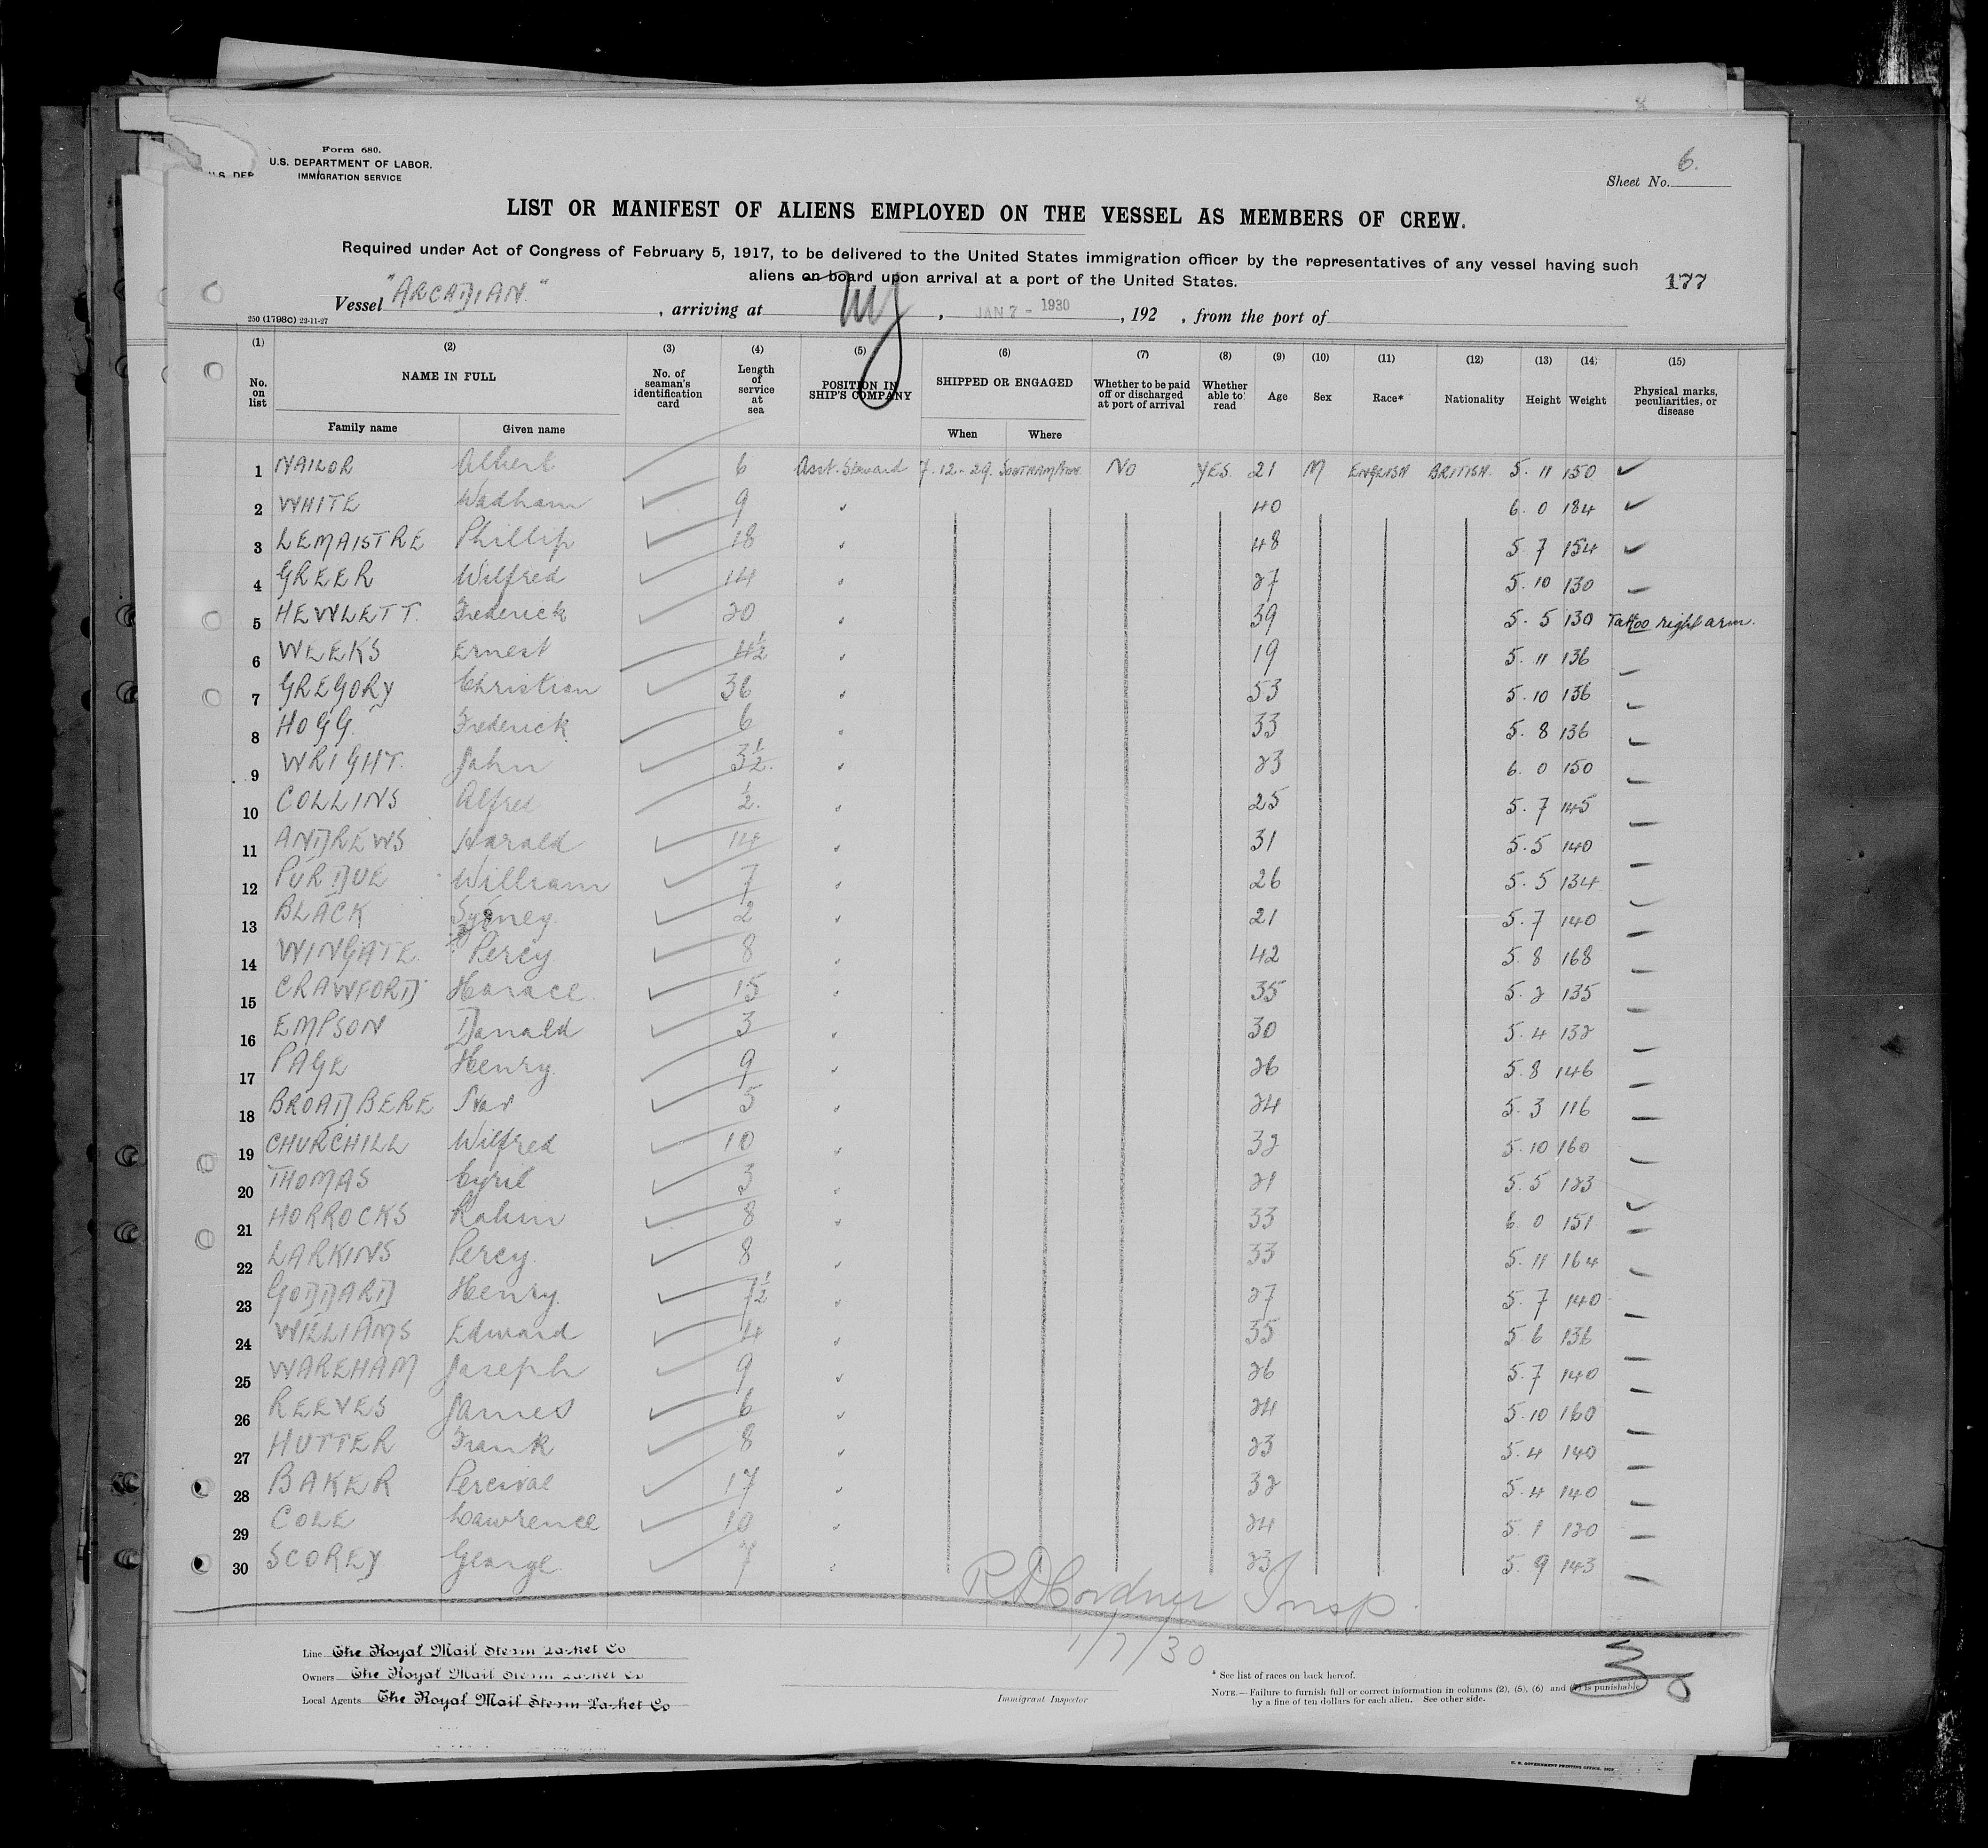 Form 680.
U.S. DEPARTMENT OF LABOR.
IMMIGRATION SERVICE
U.S. DEP
6.
Sheet No.
LIST OR MANIFEST OF ALIENS EMPLOYED ON THE VESSEL AS MEMBERS OF CREW.
Required under Act of Congress of February 5, 1917, to be delivered to the United States immigration officer by the representatives of any vessel having such
aliens on board upon arrival at a port of the United States.
177
Vessel "ARCADIAN." , arriving at NY , JAN 7 - 1930 , 192 , from the port of
250 (1798c) 29-11-27
(1) (2) (3) (4) (5) (6) (7) (8) (9) (10) (11) (12) (13) (14) (15)
No. on list NAME IN FULL No. of seaman's identification card Length of service at sea POSITION IN SHIP'S COMPANY SHIPPED OR ENGAGED Whether to be paid off or discharged at port of arrival Whether able to read Age Sex Race* Nationality Height Weight Physical marks, peculiarities, or disease
Family name Given name When Where
1 NAILOR Albert 6 Asst. Steward 7.12-29. SOUTHAMPTON NO YES. 21 M ENGLISH BRITISH. 5. 11 150
2 WHITE Wadham 9 40 6. 0 184
3 LEMAISTRE Phillip 18 48 5 7 154
4 GREER Wilfred 14 27 5. 10 130
5 HEWLETT. Frederick 20 39 5. 5 130 Tattoo right arm.
6 WEEKS Ernest 4½ 19 5. 11 136
7 GREGORY Christian 36 53 5. 10 136
8 HOGG. Frederick 6 33 5. 8 136
9 WRIGHT. John 3½ 23 6. 0 150
10 COLLINS Alfred ½ 25 5. 7 145
11 ANDREWS Harald 14 31 5. 5 140
12 PURDUE William 7 26 5. 5 134
13 BLACK Sydney. 2 21 5. 7 140
14 WINGATE Percy 8 42 5. 8 168
15 CRAWFORD Horace 15 35 5. 2 135
16 EMPSON Donald 3 30 5. 4 132
17 PAGE Henry 9 26 5. 8 146
18 BROADBERE Ivor 5 24 5. 3 116
19 CHURCHILL Wilfred 10 32 5. 10 160
20 THOMAS Cyril 3 21 5. 5 123
21 HORROCKS 8 33 6 0 151
22 LARKINS Percy. 8 33 5. 11 164
23 GODDARD Henry. 7½ 27 5. 7 140
24 WILLIAMS Edward 4 35 5. 6 136
25 WAREHAM Joseph 9 26 5. 7 140
26 REEVES James 6 24 5. 10 160
27 HUTTER Frank 8 23 5. 4 140
28 BAKER Percival 17 32 5. 4 140
29 COLE Lawrence 10 24 5. 1 120
30 SCOREY George 7 23 5. 9 143
R D Cordner Insp.
1/7/30
Line The Royal Mail Steam Packet Co
Owners The Royal Mail Steam Packet Co
Local Agents The Royal Mail Steam Packet Co
Immigrant Inspector
* See list of races on back hereof.
NOTE.—Failure to furnish full or correct information in columns (2), (5), (6) and (7) is punishable
by a fine of ten dollars for each alien. See other side.
30
U. S. GOVERNMENT PRINTING OFFICE